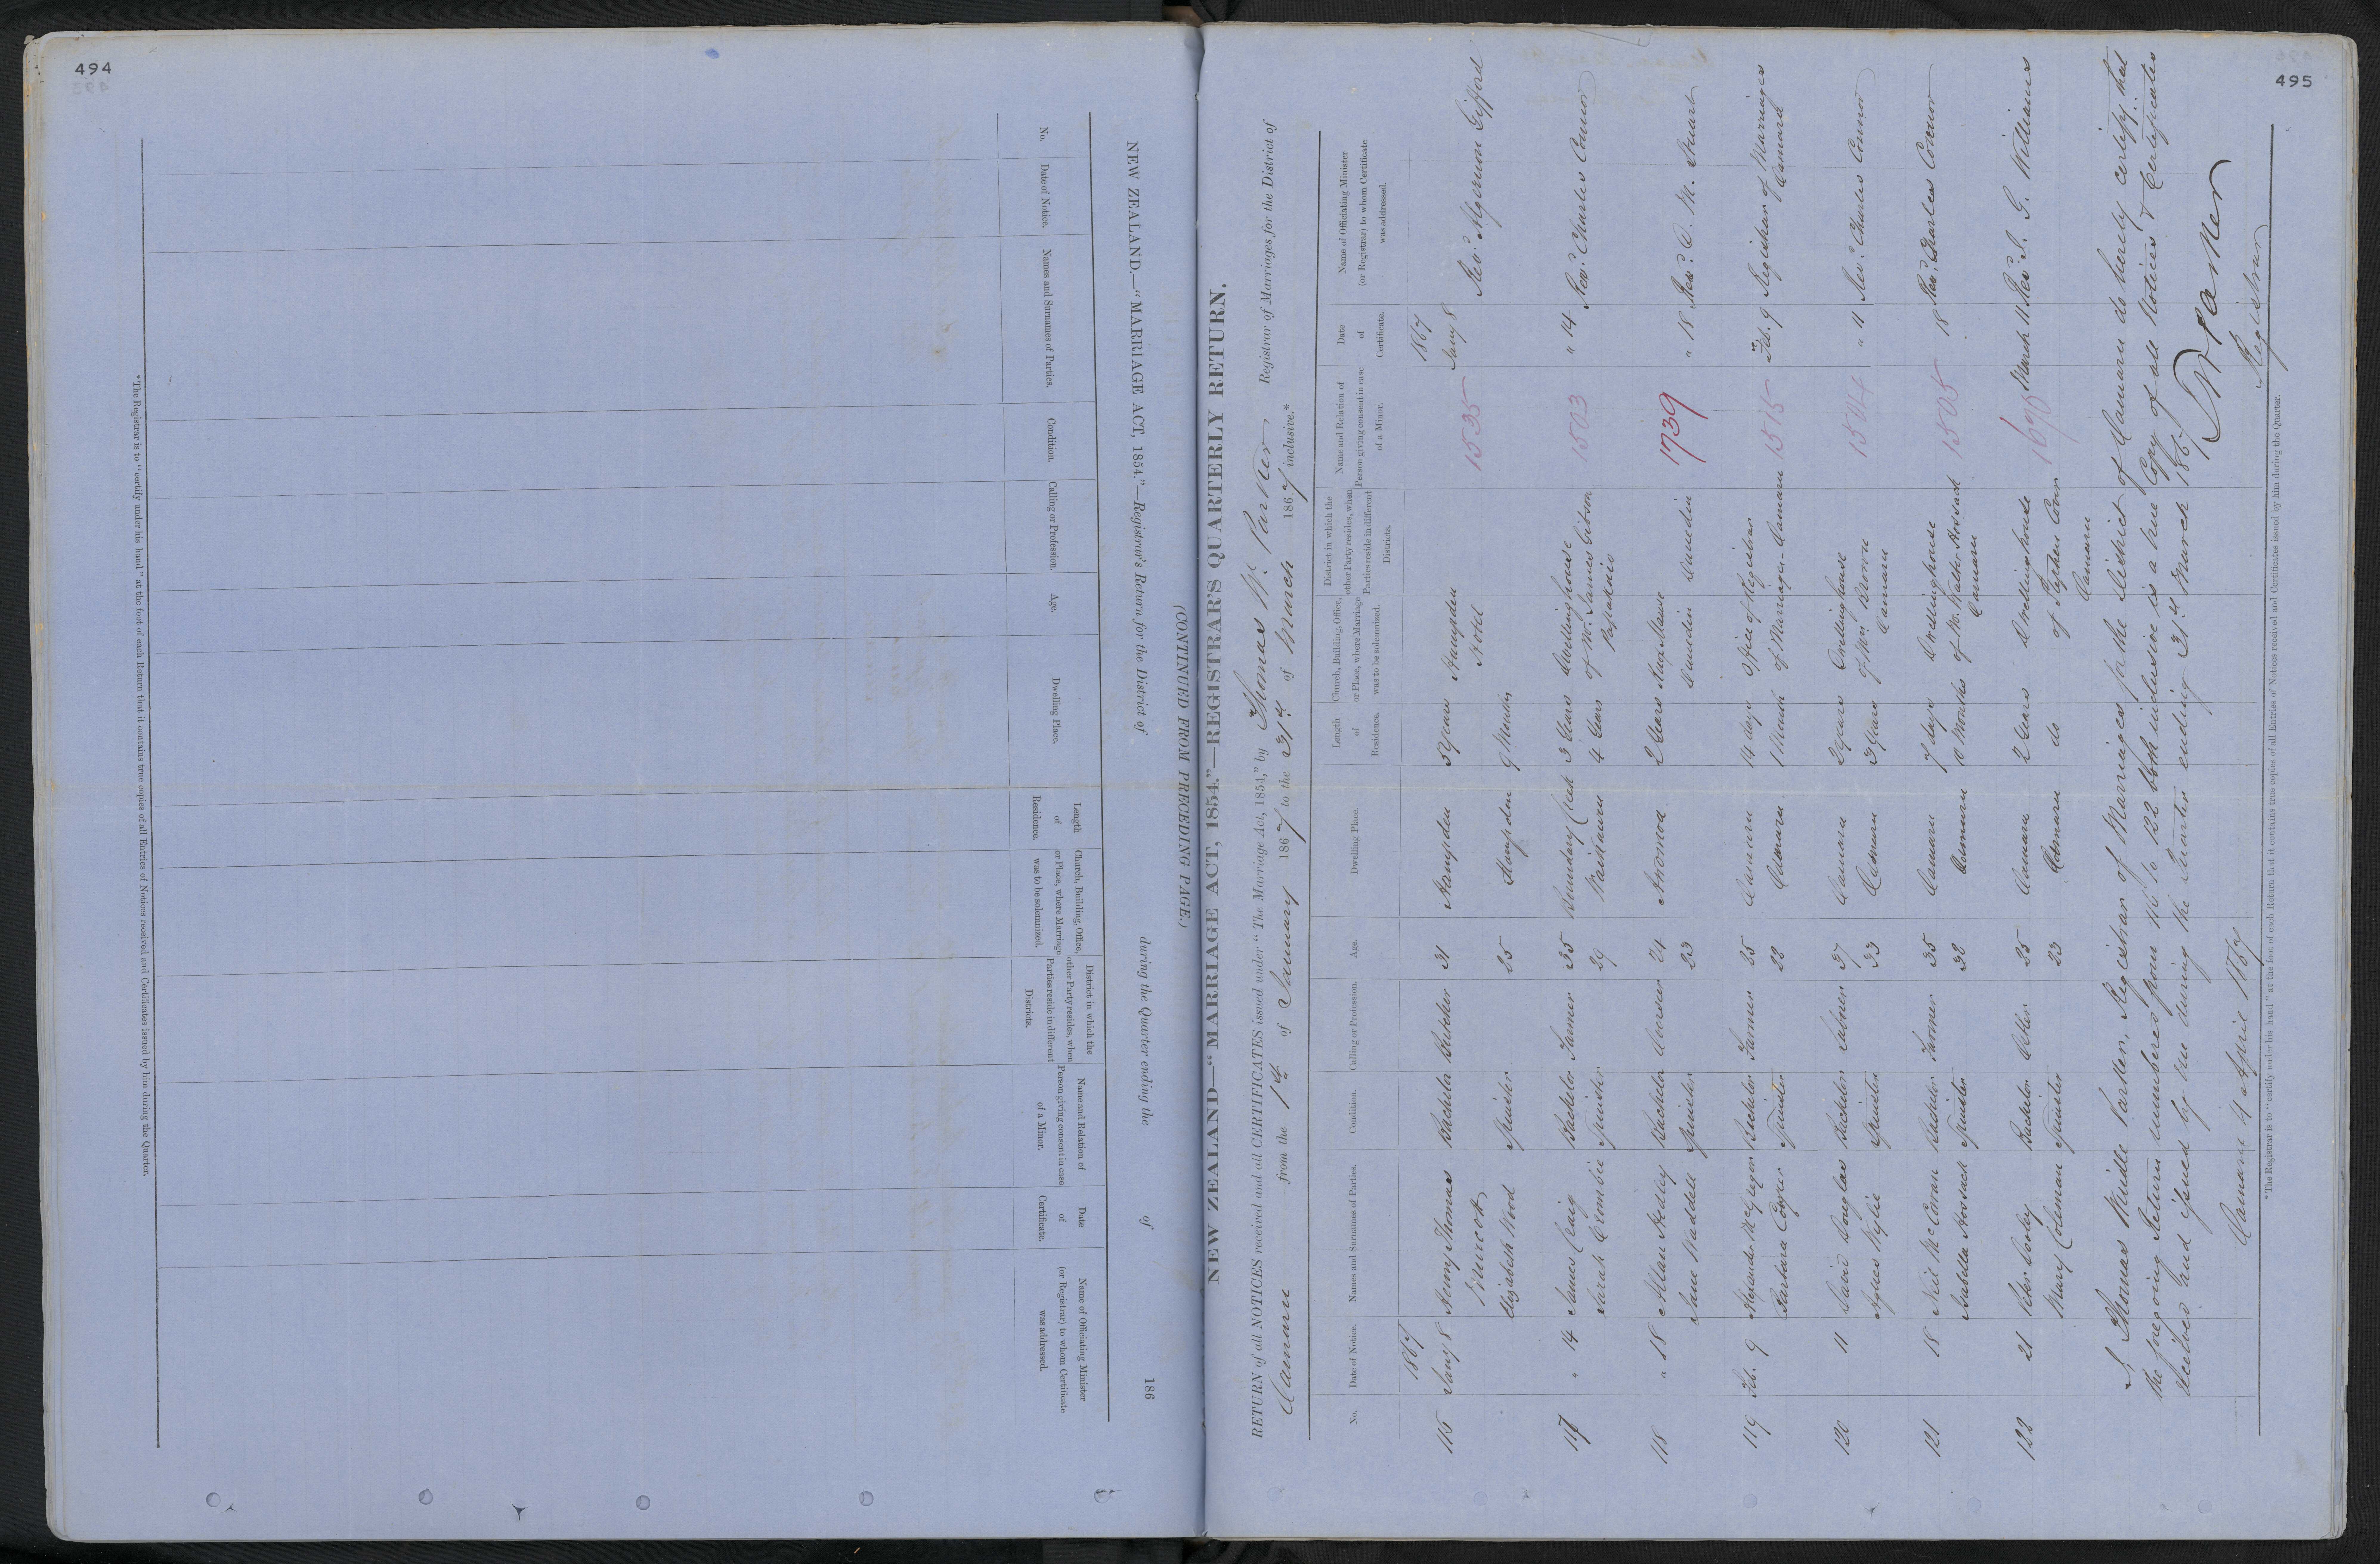 494
NEW ZEALAND.—"MARRIAGE ACT, 1854."—Registrar's Return for the District of during the Quarter ending the of 186
(CONTINUED FROM PRECEDING PAGE.)
No. Date of Notice. Names and Surnames of Parties. Condition. Calling or Profession. Age. Dwelling Place. Length of Residence. Church, Building, Office, or Place, where Marriage was to be solemnized. District in which the other Party resides, when Parties reside in different Districts. Name and Relation of Person giving consent in case of a Minor. Date of Certificate. Name of Officiating Minister (or Registrar) to whom Certificate was addressed.
* The Registrar is to "certify under his hand" at the foot of each Return that it contains true copies of all Entries of Notices received and Certificates issued by him during the Quarter.
495
NEW ZEALAND—"MARRIAGE ACT, 1854."—REGISTRAR'S QUARTERLY RETURN.
RETURN of all NOTICES received and all CERTIFICATES issued under "The Marriage Act, 1854," by Thomas W. Parker Registrar of Marriages for the District of
Oamaru from the 1st of January 1867 to the 31st of March 1867 inclusive.*
No. Date of Notice. Names and Surnames of Parties. Condition. Calling or Profession. Age. Dwelling Place. Length of Residence. Church, Building, Office, or Place, where Marriage was to be solemnized. District in which the other Party resides, when Parties reside in different Districts. Name and Relation of Person giving consent in case of a Minor. Date of Certificate. Name of Officiating Minister (or Registrar) to whom Certificate was addressed.
1867 1867
116 Jany 8 Henry Thomas Bachelor Butcher 31 Hampden 3 years Hampden 1535 Jany 8
Murcott Hotel Revd. Algernon Gifford
Elizabeth Wood Spinster 25 Hampden 9 Months
117 " 14 James Craig Bachelor Farmer 35 Boundary Creek 3 Years Dwellinghouse 1503 " 14 Revd. Charles Connor
Sarah Crombie Spinster 29 Waitaki 4 Years of Mr. James Gibson
Papakaio
118 " 18 Allan Hedley Bachelor 24 Awamoa 2 Years Knox Manse 1739 " 18 Revd. D. M. Stuart
Jane Waddell Spinster 23 Dunedin Dunedin
119 Feb. 9 Alexander McGregor Bachelor Farmer 25 Oamaru 14 days Office of Registrar 1515 Feb. 9 Registrar of Marriages
Barbara Spinster 22 Oamaru 1 Month of Marriages Oamaru Oamaru
120 11 David Douglas Bachelor Labourer 37 Oamaru 2 years Dwellinghouse 1504 " 11 Revd. Charles Connor
Agnes Wylie Spinster 33 Oamaru 3 years of Mr. Brown
Oamaru
121 18 Neil McCorran Bachelor Farmer 35 Oamaru 7 days Dwellinghouse 1505 18 Revd. Charles Connor
Isabella Horsnach Spinster 32 Oamaru 10 Months of Mr. Walter Horsnach
Oamaru
122 21 Peter Bachelor 25 Oamaru 2 Years Dwellinghouse 1675 March 11 Revd. Williams
Mary Coleman Spinster 23 Oamaru do of Stephen
Oamaru
I Thomas Windle Parker, Registrar of Marriages for the District of Oamaru do hereby certify that
the foregoing Return numbered from 116 to 122 both inclusive is a true Copy of all Notices & Certificates
received and issued by me during the Quarter ending 31st March 1867.
T W Parker
Oamaru 4 April 1867 Registrar
* The Registrar is to "certify under his hand" at the foot of each Return that it contains true copies of all Entries of Notices received and Certificates issued by him during the Quarter.